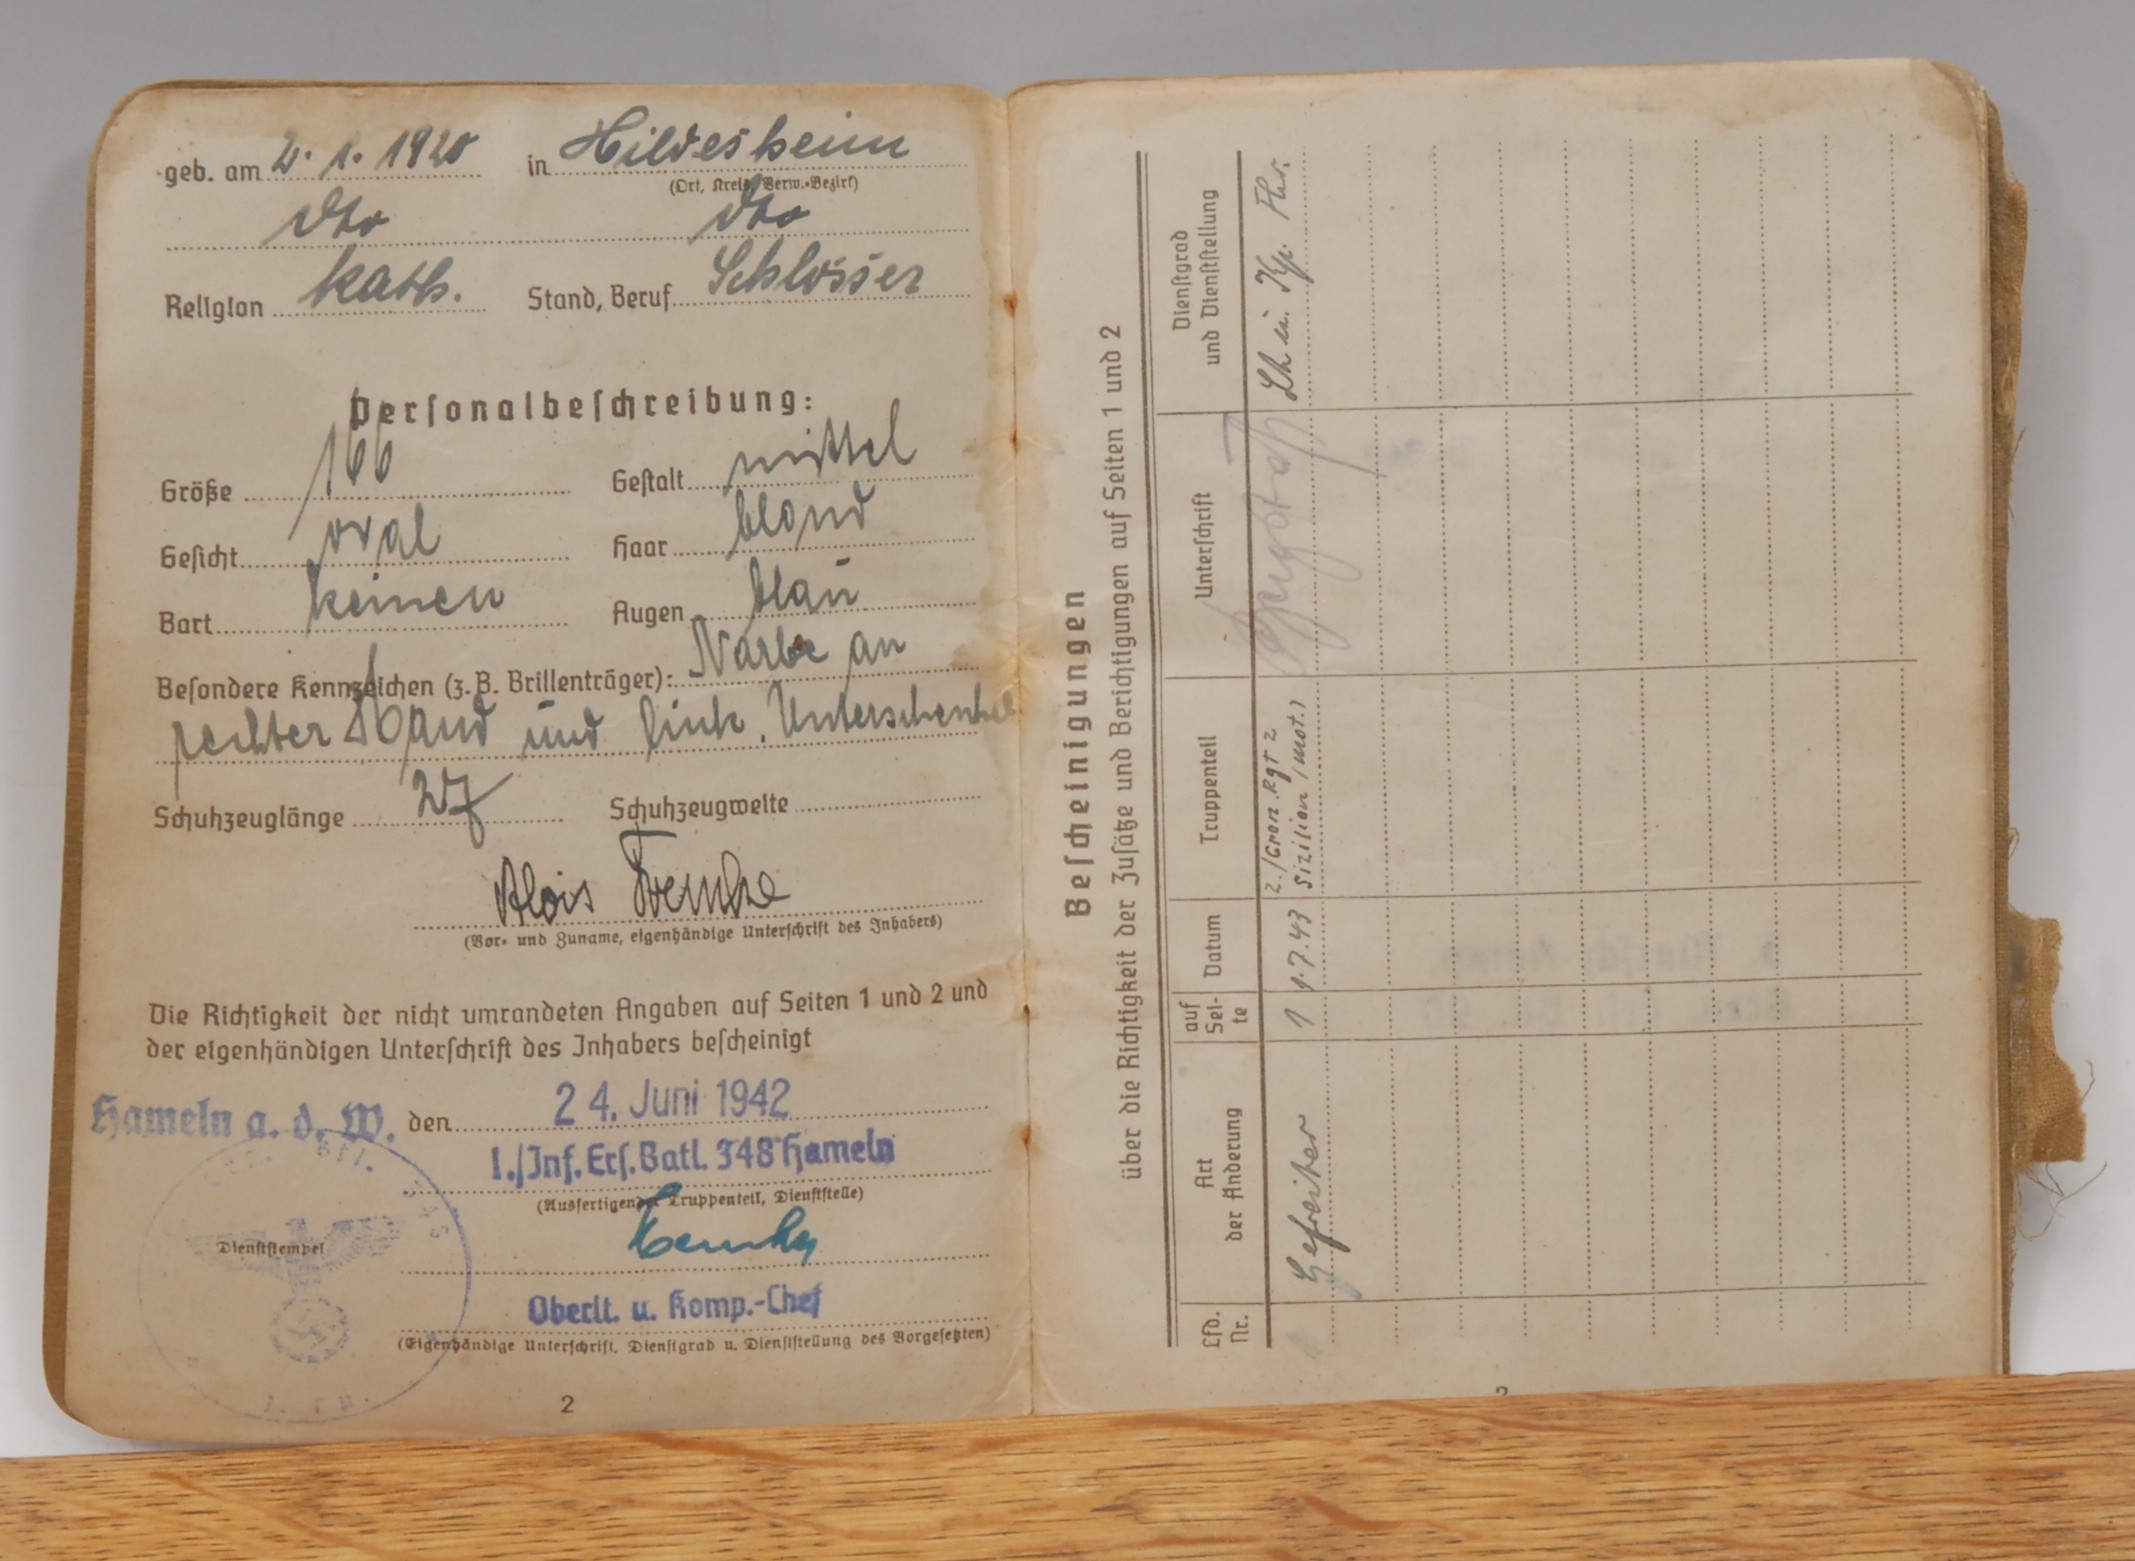 geb. am 2. 1. 1920 in Hildesheim
(Ort, Kreis, Verw.-Bezirk)
dto dto
Religion kath. Stand, Beruf Schlosser
Personalbeschreibung:
Größe 166 Gestalt mittel
Gesicht oval Haar blond
Bart keinen Augen blau
Besondere Kennzeichen (z. B. Brillenträger): Narbe an
rechter Hand und link. Unterschenkel
Schuhzeuglänge 27 Schuhzeugweite
Alois
(Vor- und Zuname, eigenhändige Unterschrift des Inhabers)
Die Richtigkeit der nicht umrandeten Angaben auf Seiten 1 und 2 und
der eigenhändigen Unterschrift des Inhabers bescheinigt
Hameln a. d. W. den 24. Juni 1942
1./Inf. Ers. Batl. 348 Hameln
(Ausfertigender Truppenteil, Dienststelle)
Dienststempel
Oberlt. u. Komp.-Chef
(Eigenhändige Unterschrift, Dienstgrad u. Dienststellung des Vorgesetzten)
2
Bescheinigungen
über die Richtigkeit der Zusätze und Berichtigungen auf Seiten 1 und 2
Lfd. Nr.
Art der Änderung
auf Sei-te
Datum
Truppenteil
Unterschrift
Dienstgrad und Dienststellung
Gefreiter 1 1.7.43 2./Gren. Rgt 2 Lt. u. Kp. Fhr.
Sizilien (mot.)